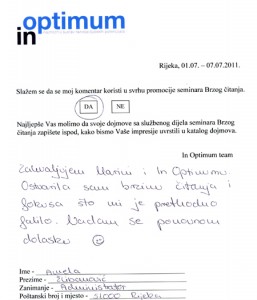 in optimum
Rijeka, 01.07. – 07.07.2011.
Slažem se da se moj komentar koristi u svrhu promocije seminara Brzog čitanja.
DA NE
Najljepše Vas molimo da svoje dojmove sa službenog dijela seminara Brzog
čitanja zapišete ispod, kako bismo Vaše impresije uvrstili u katalog dojmova.
In Optimum team
Zahvaljujem Marini i In Optimumu.
Ostvarila sam brzinu čitanja i
fokusa što mi je prethodno
falilo. Nadam se ponovnom
dolasku
Ime - Amela
Prezime -
Zanimanje - Administrator
Poštanski broj i mjesto - 51000 Rijeka